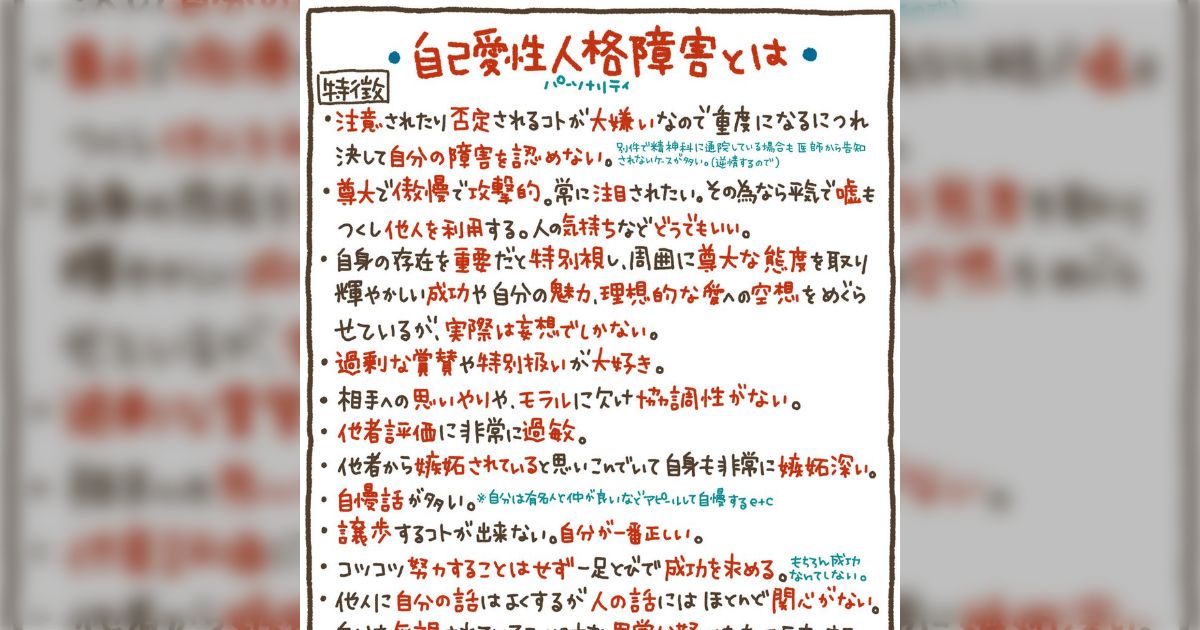 自己愛性人格障害とは
パーソナリティ
特徴
・注意されたり否定されるコトが大嫌いなので重度になるにつれ
決して自分の障害を認めない。
別件で精神科に通院している場合も医師から告知
されないケースが多い。(逆情するので)
・尊大で傲慢で攻撃的。常に注目されたい。その為なら平気で嘘も
つくし他人を利用する。人の気持ちなどどうでもいい。
・自身の存在を重要だと特別視し、周囲に尊大な態度を取り
輝やかしい成功や自分の魅力、理想的な愛への空想をめぐら
せているが、実際は妄想でしかない。
・過剰な賞賛や特別扱いが大好き。
・相手への思いやりや、モラルに欠け協調性がない。
・他者評価に非常に過敏。
・他者から嫉妬されていると思いこんでいて自身も非常に嫉妬深い。
・自慢話が多い。※自分は有名人と仲が良いなどアピールして自慢するetc
・譲歩するコトが出来ない。自分が一番正しい。
・コツコツ努力することはせず一足とびで成功を求める。
もちろん成功
なんてしない。
・他人に自分の話はよくするが人の話にはほとんど関心がない。